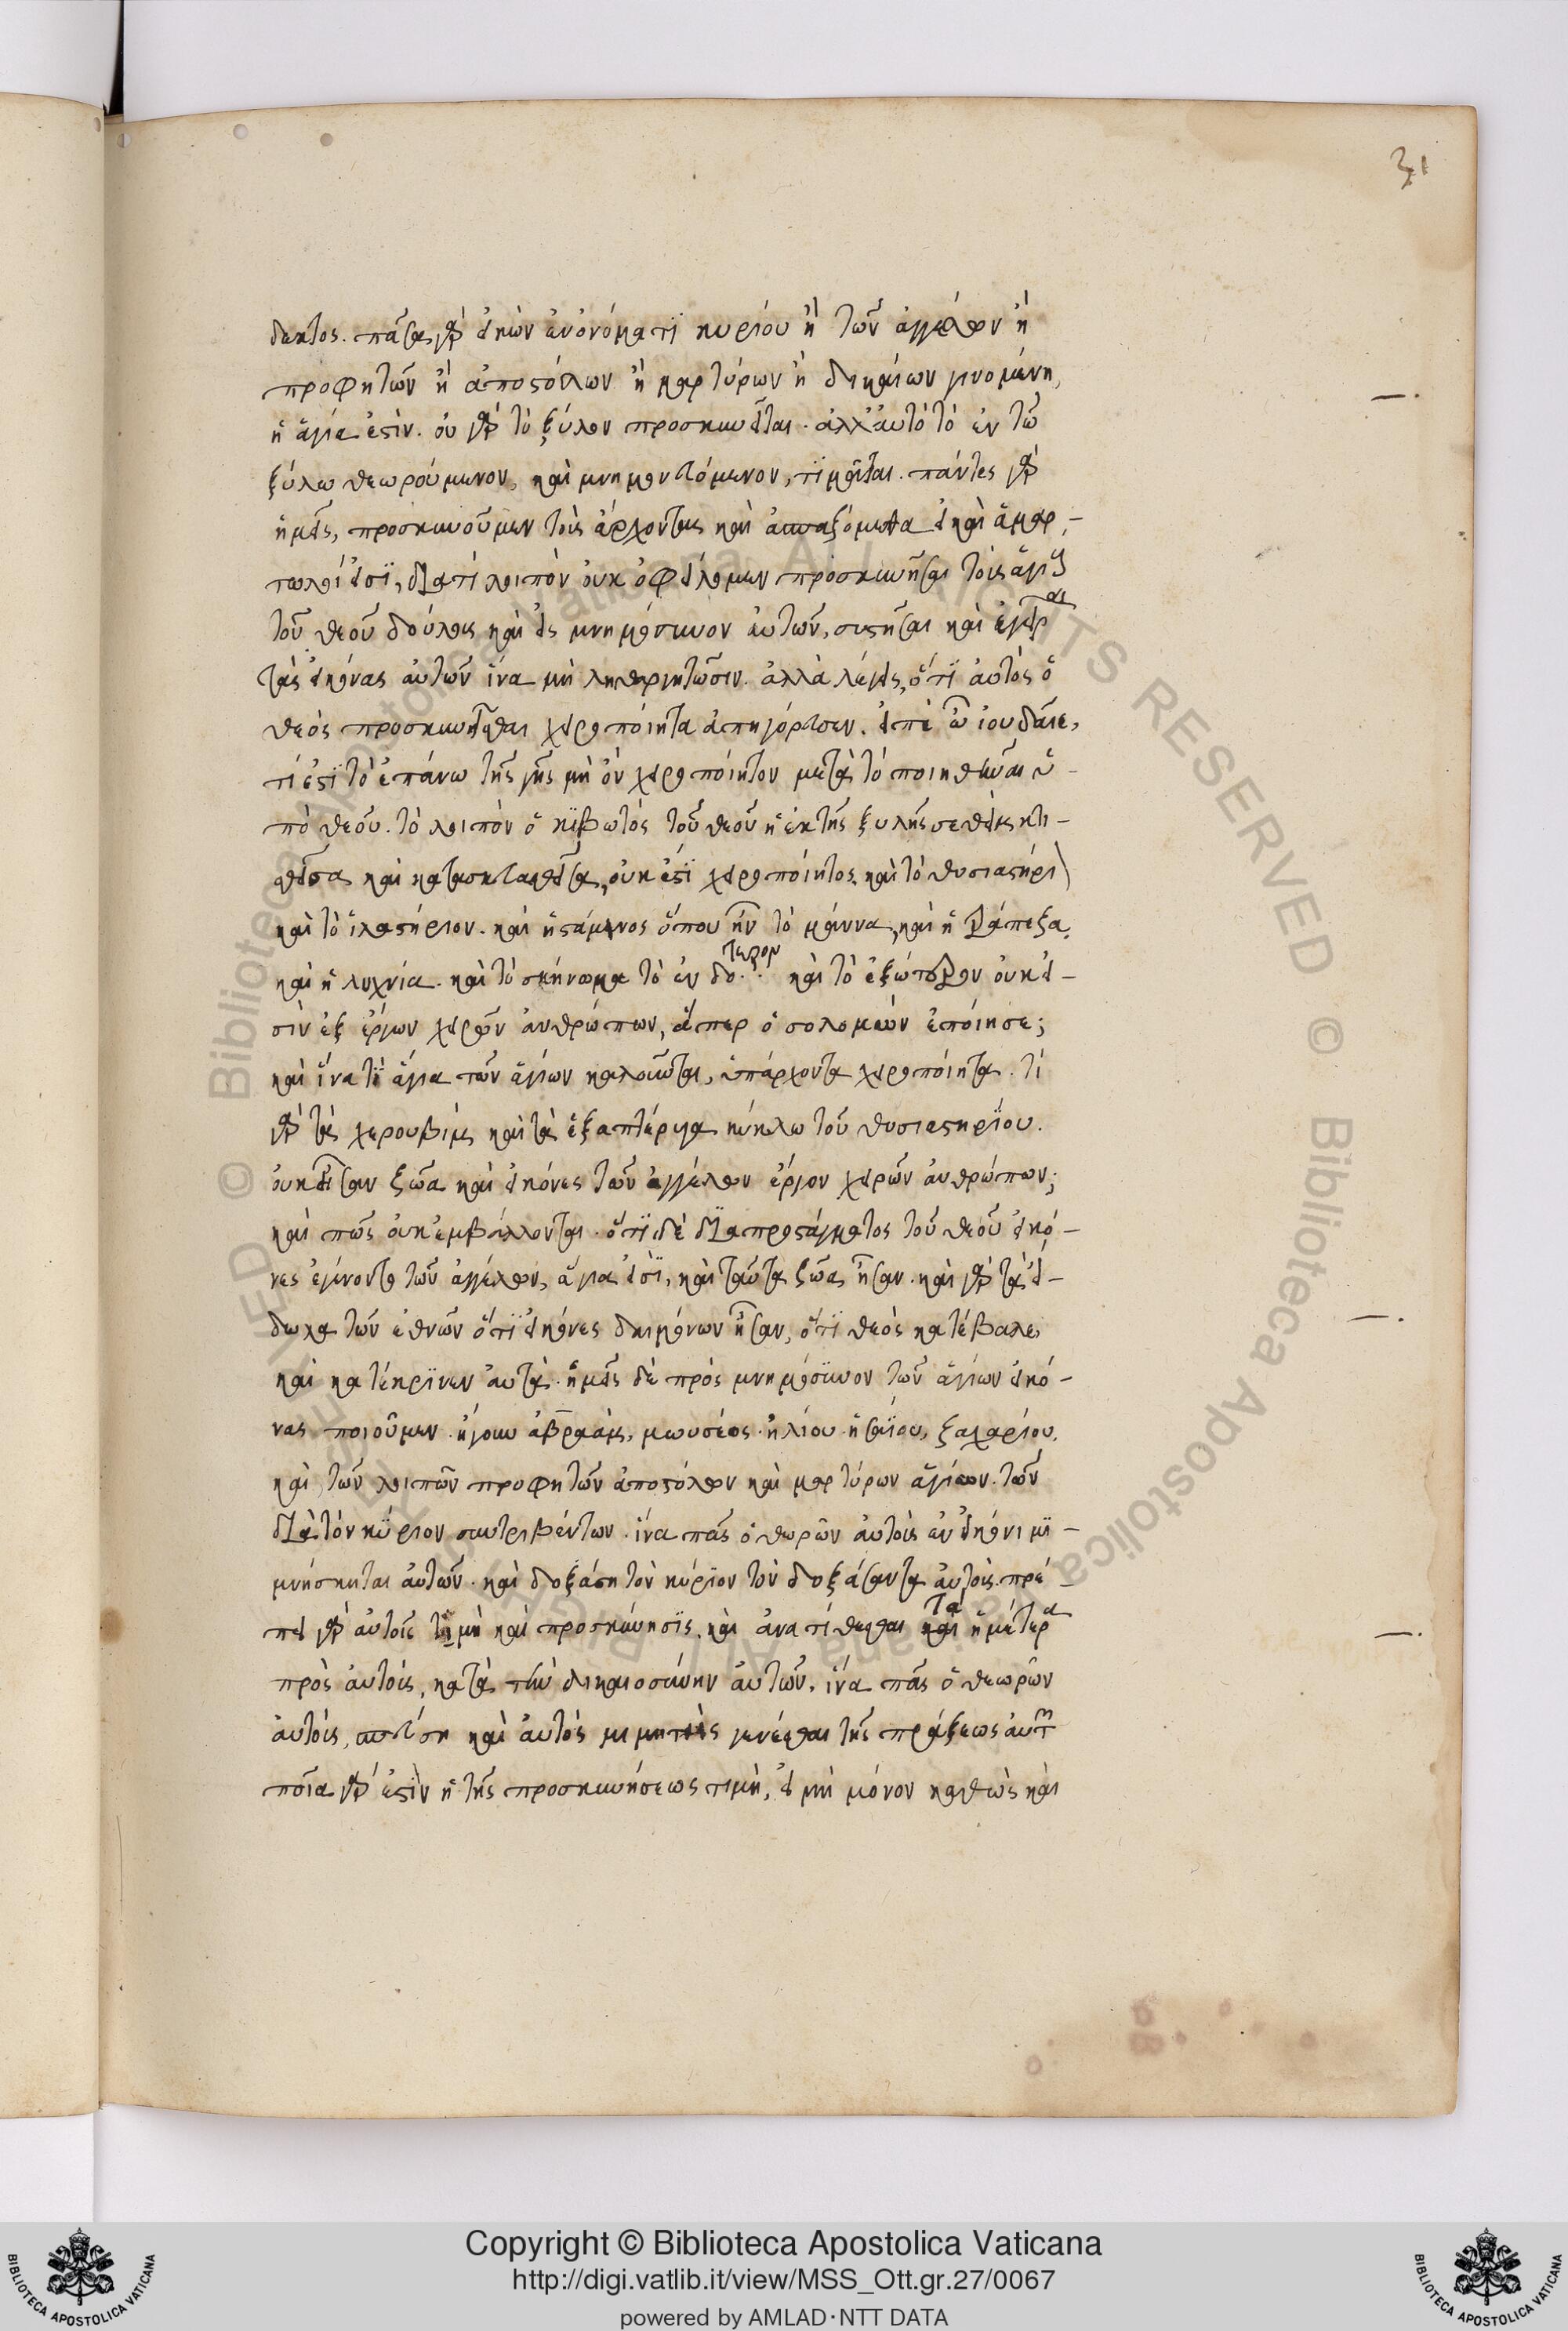 31
δεκτος. πᾶσα γὰρ εἰκὼν ἐν ὀνόματϊ κυρίου ἢ τῶν ἀγγέλων ἢ
προφητῶν ἢ ἀποστόλων ἢ μαρτύρων ἢ δικαίων γινομένη,
ἡ ἁγία ἐστὶν. οὐ γὰρ τὸ ξύλον προσκυνεῖται. ἀλλ' αὐτὸ τὸ ἐν τῶ
ξύλω θεωρούμενον, καὶ μνημονευόμενον, τϊμᾶται. πάντες γὰρ
ἡμεῖς, προσκυνοῦμεν τοὺς ἄρχοντας καὶ ἀσπαζόμεθα εἰ καὶ ἁμαρ-
τωλοί εἰσϊ, διατί λοιπὸν οὐκ ὀφείλομεν προσκυνῆσαι τοὺς ἁγίους
τοῦ θεοῦ δούλους καὶ εἰς μνημόσυνον αὐτῶν, στῆσαι καὶ ἐγεῖραι
τὰς εἰκόνας αὐτῶν ἵνα μὴ ληθαργητῶσιν. ἀλλὰ λέγεις, ὅτϊ αὐτὸς ὁ
θεὸς προσκυνεῖσθαι χειροποίητα ἀπηγόρευσεν. εἰπὲ ὦ ἰουδαῖε,
τί ἐστϊ τὸ ἐπάνω τῆς γῆς μὴ ὂν χειροποίητον μετὰ τὸ ποιηθῆναι ὑ-
πὸ θεοῦ. τὸ λοιπὸν ὁ κϊβωτός τοῦ θεοῦ ἡ ἐκ τῆς ξυλῆς σεθεὶμ κτι-
σθεῖσα καὶ κατασκευασθεῖσα, οὐκ ἔστϊ χειροποίητος, καὶ τὸ θυσιαστήρι
καὶ τὸ ἱλαστήριον. καὶ ἡ στάμνος ὅπου ἦν τὸ μάννα, καὶ ἡ τράπεζα,
καὶ ἡ λυχνία. καὶ τὸ σκήνωμα τὸ ἐνδότερον καὶ τὸ ἐξώτερον οὐκ εἰ-
σὶν ἐξ ἔργων χειρῶν ἀνθρώπων, ἅπερ ὁ σολομών ἐποίησε;
καὶ ἵνα τί ἅγια τῶν ἁγίων καλοῦνται, ὑπάρχοντα χειροποίητα. τί
γὰρ τὰ χερουβὶμ καὶ τὰ ἑξαπτέρυγα κύκλω τοῦ θυσιαστηρίου.
οὐκ ἦσαν ζῶα καὶ εἰκόνες τῶν ἀγγέλων ἔργον χειρῶν ἀνθρώπων;
καὶ πῶς οὐκ ἐμβάλλονται. ὅτϊ δὲ δϊα προστάγματος τοῦ θεοῦ εἰκό-
νες ἐγίνοντο τῶν ἀγγέλων, ἅγια εἰσϊ, καὶ ταῦτα ζῶα ἦσαν. καὶ γὰρ τὰ εἴ-
δωλα τῶν ἐθνῶν ὅτϊ εἰκόνες δαιμόνων ἦσαν, ὅτϊ θεὸς κατέβαλε,
καὶ κατέκρϊνεν αὐτὰ. ἡμεῖς δὲ πρὸς μνημόσϋνον τῶν ἁγίων εἰκό-
νας ποιοῦμεν. ἤγουν ἀβραὰμ, μωυσέος. ἠλίου. ἠσαΐου, ζαχαρίου,
καὶ τῶν λοιπῶν προφητῶν ἀποστόλων καὶ μαρτύρων ἁγίων. τῶν
δϊα τὸν κύριον συντριβέντων. ἵνα πᾶς ὁ θωρῶν αὐτοὺς ἐν εἰκόνι μϊ-
μνήσκηται αὐτῶν. καὶ δοξάση τὸν κύρϊον τὸν δοξάσαντα αὐτοὺς. πρέ-
πει γὰρ αὐτοῖς τϊμὴ καὶ προσκύνησϊς, καὶ ἀνατίθεσθαι τὰ ἡμέτερα
πρὸς αὐτοὺς, κατὰ τὴν δικαιοσύνην αὐτῶν, ἵνα πᾶς ὁ θεωρῶν
αὐτοὺς, σπεύση καὶ αὐτὸς μιμητὴς γενέσθαι τῆς πράξεως αὐτῶν
ποῖα γὰρ ἐστϊν ἡ τῆς προσκυνήσεως τιμὴ, εἰ μὴ μόνον καθὼς καὶ
Copyright © Biblioteca Apostolica Vaticana
http://digi.vatlib.it/view/MSS_Ott.gr.27/0067
powered by AMLAD·NTT DATA